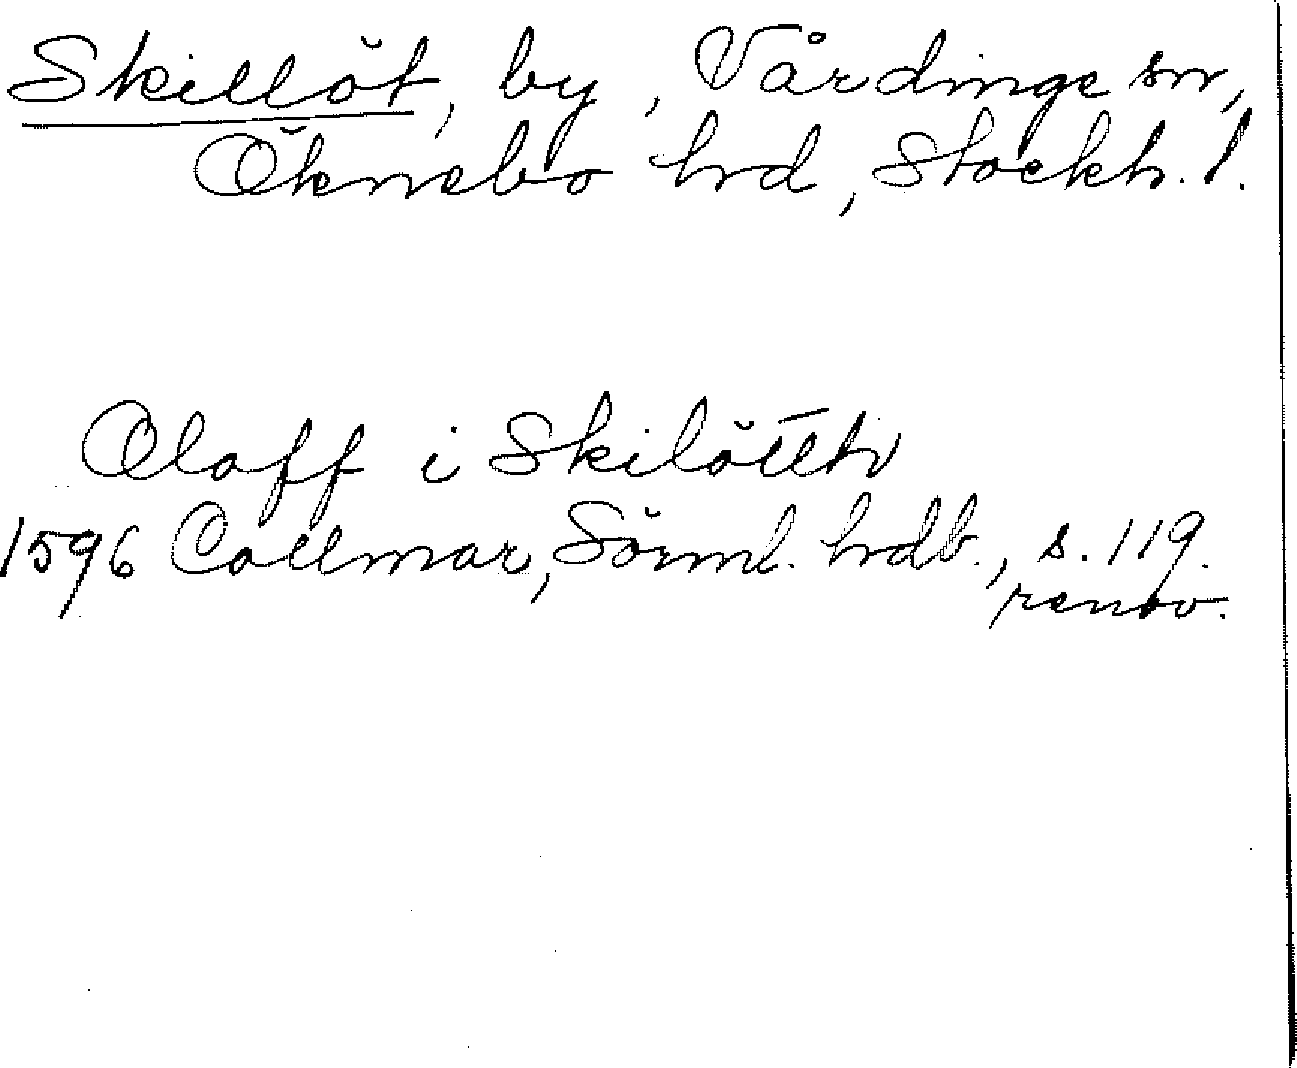 Skillöt, by, Vårdinge sn,
Öknebo hd, Stockh. l.
Oloff i Skilötth
1596 Collmar, Sörml. hdb., s. 119.
renov.